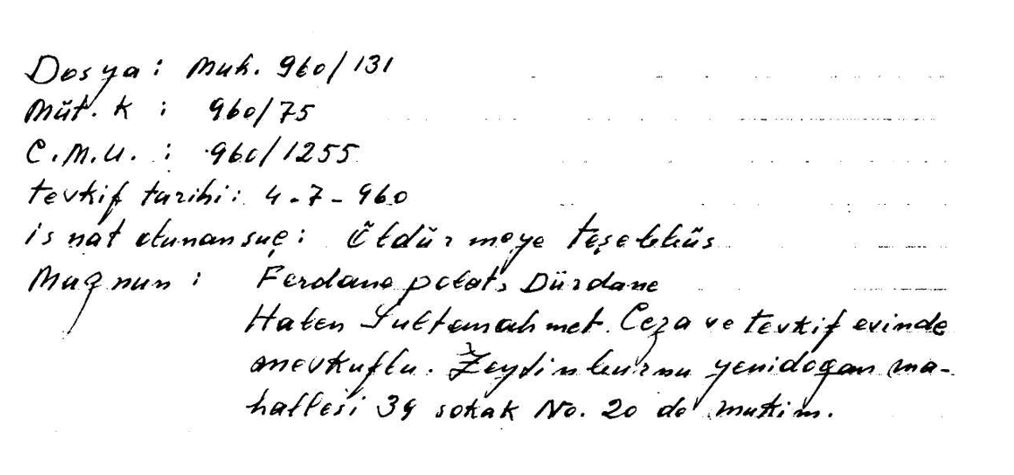 Dosya: Muh. 960/131
Müt. K : 960/75
C.M.U. : 960/1255
tevkif tarihi: 4-7-960
isnat olunan suç: Öldürmeye teşebbüs
Maznun : Ferdane polat, Dürdane
Halen Sultanahmet. Ceza ve tevkif evinde
mevkuftu. Zeytinburnu yenidoğan ma-
hallesi 39 sokak No. 20 de mukim.